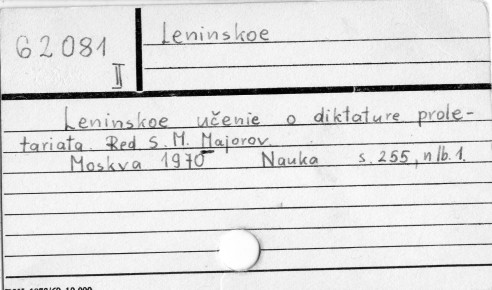 62081
II
Leninskoe
Leninskoe učenie o diktature prole-
tariata. Red S. M. Majorov.
Moskva 1970 Nauka s. 255, nlb. 1.